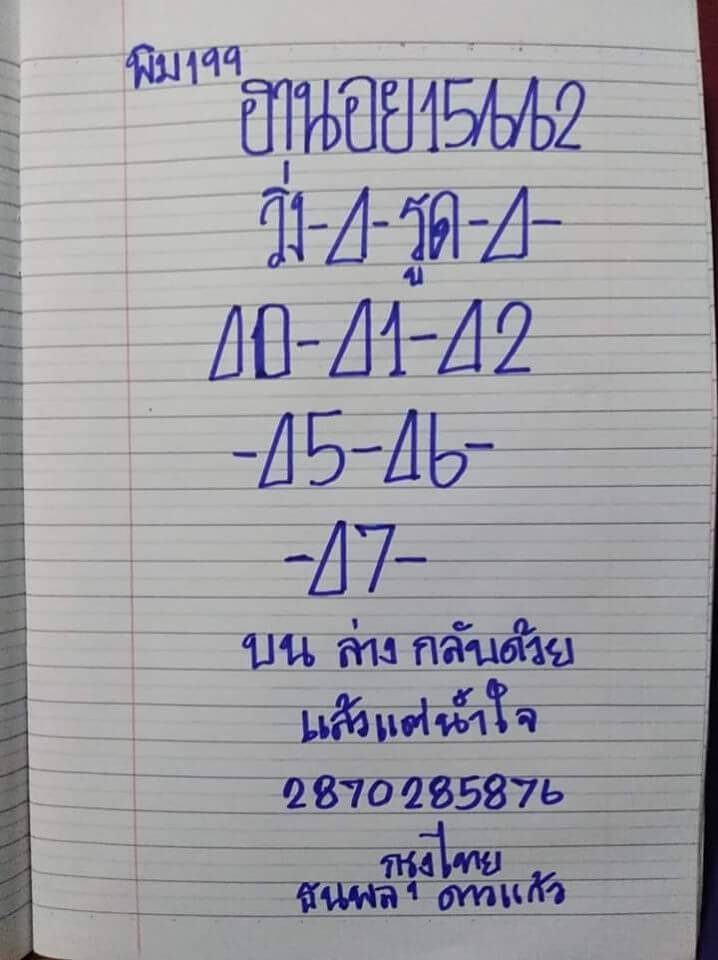 พิม199
ฮานอย15/6/62
วิ่ง-4-รูด-4-
40-41-42
-45-46-
-47-
บน ล่าง กลับด้วย
แล้วแต่น้ำใจ
2870285876
กรุงไทย
ธนพล ดาวแก้ว